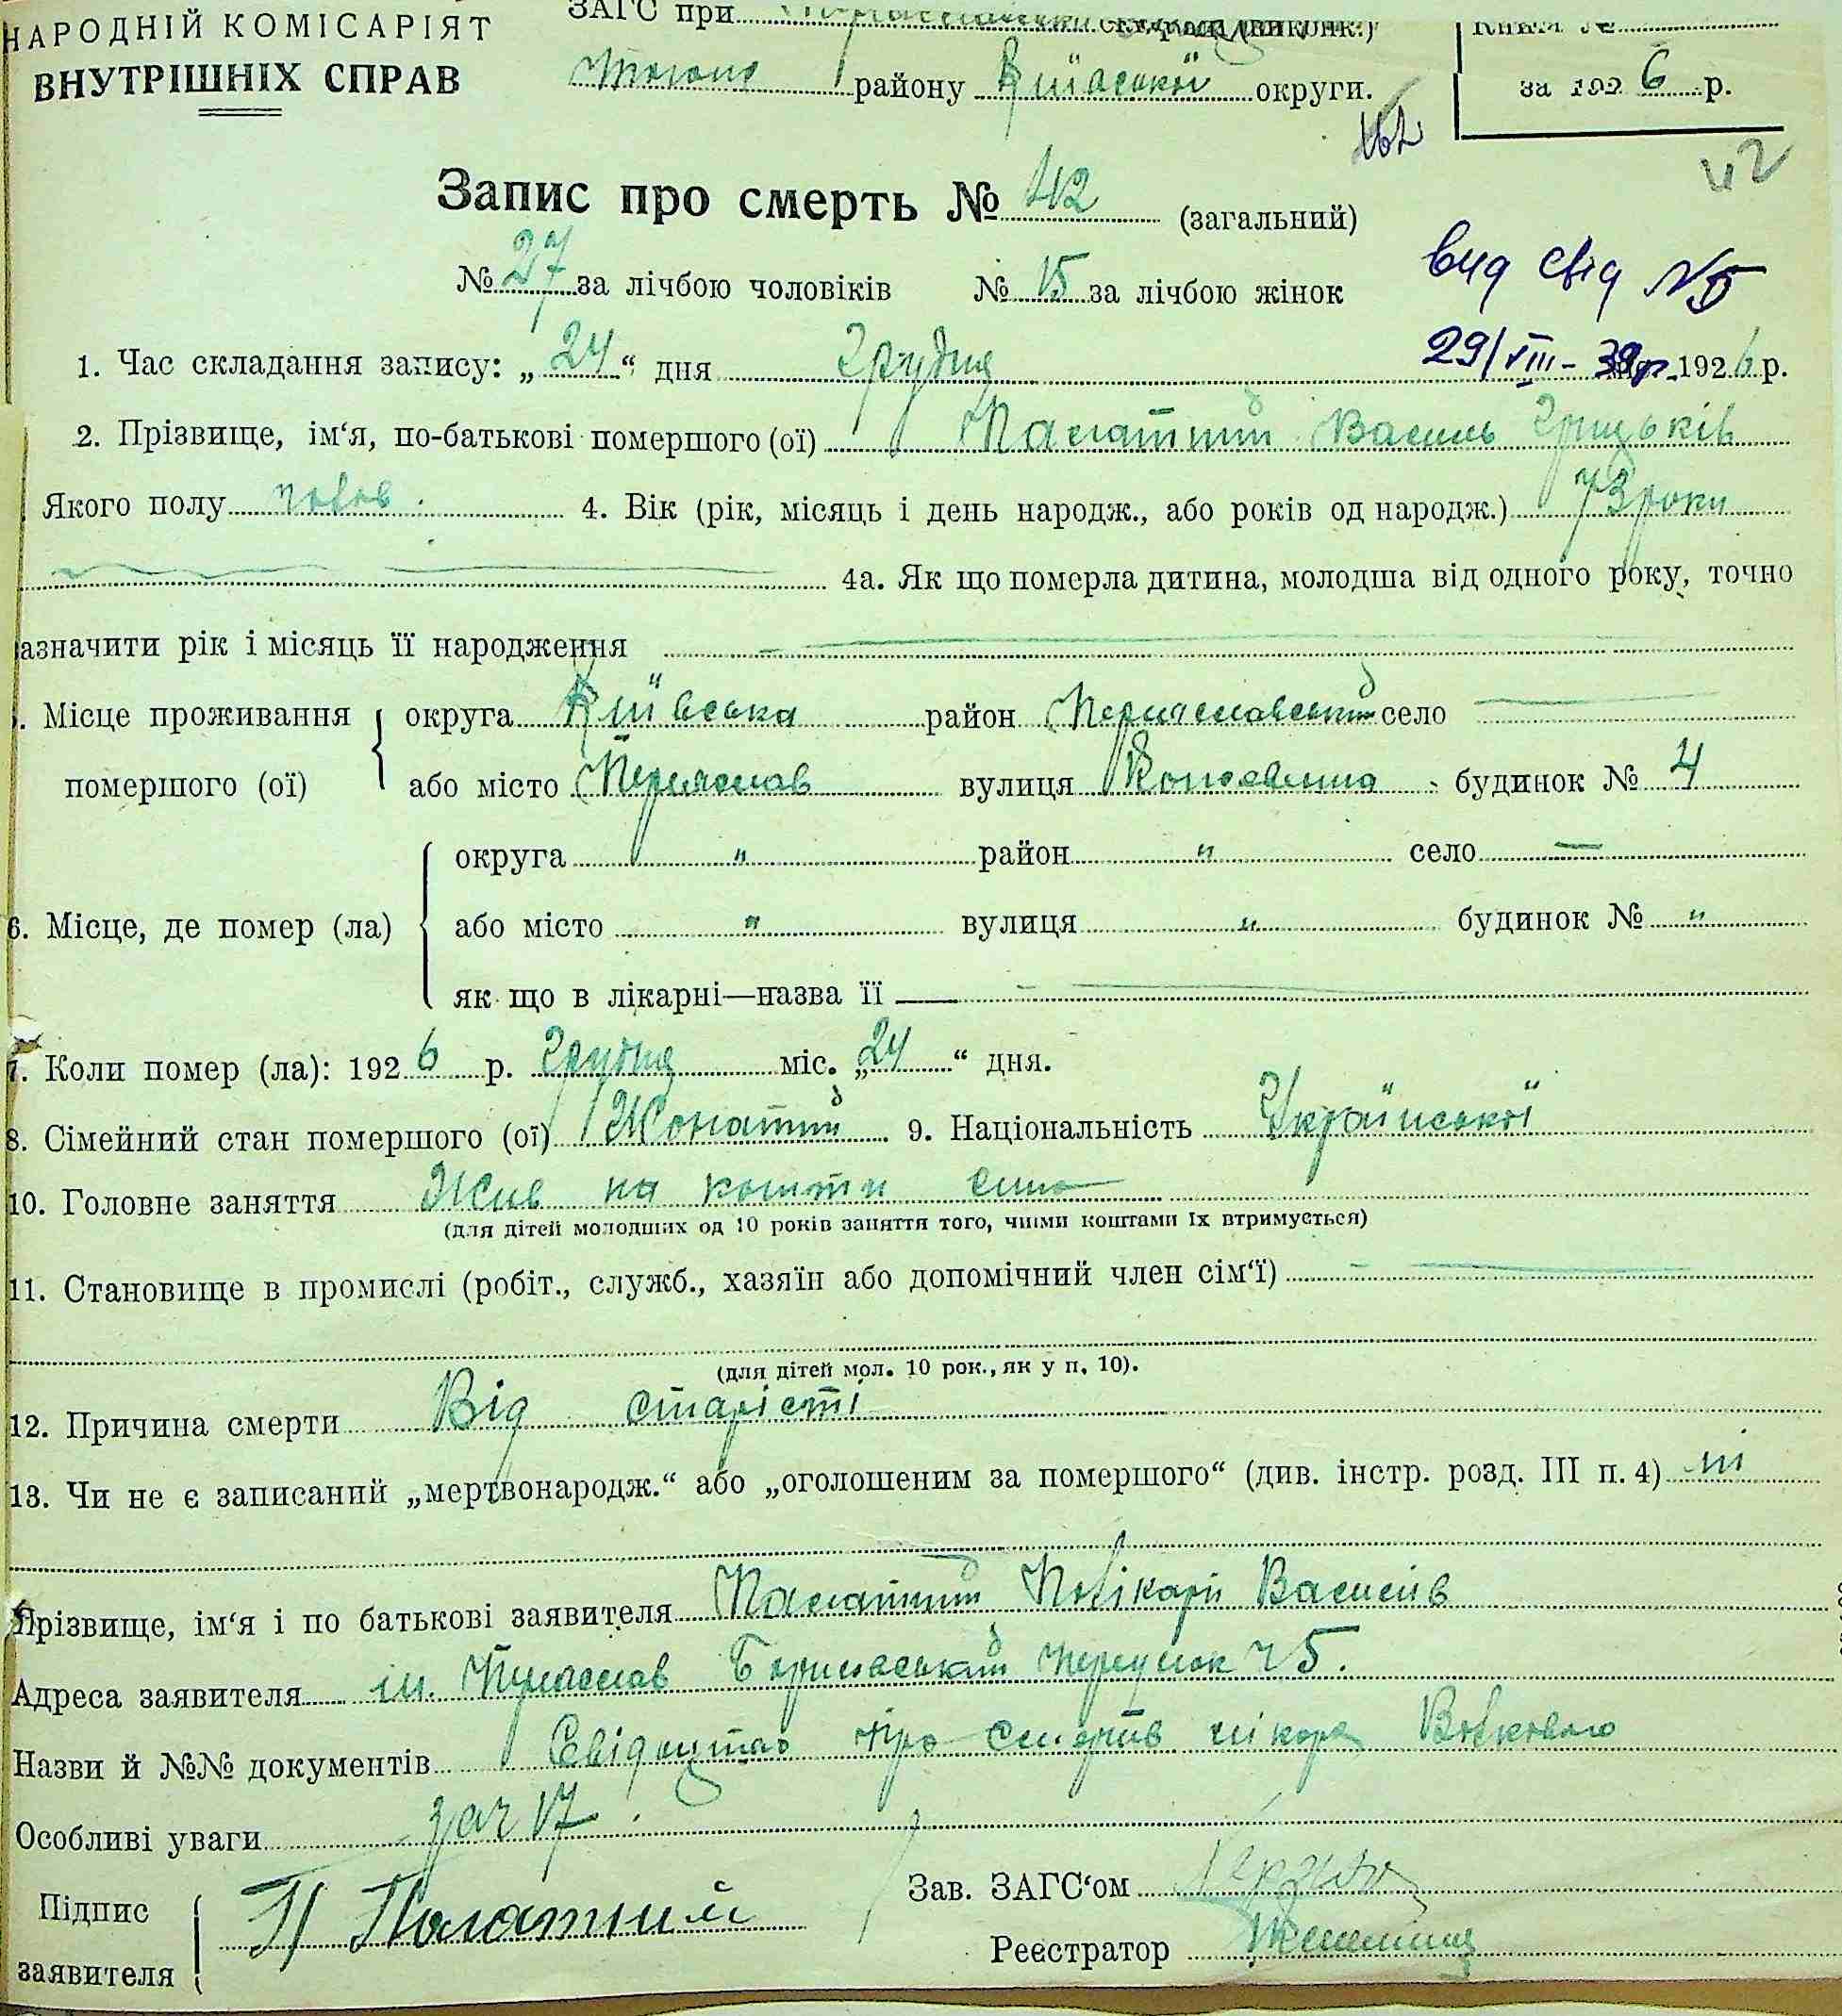 НАРОДНІЙ КОМІСАРІЯТ
ВНУТРІШНІХ СПРАВ
ЗАГС при
району Київської округи.
Книга №
за 1926 р.
42
Запис про смерть № 42 (загальний)
№ 27 за лічбою чоловіків № 15 за лічбою жінок
вид свід №
29/VIII-39р.
1. Час складання запису: „24“ дня Грудня 1926 р.
2. Прізвище, ім‘я, по-батькові помершого (ої) Палатний Василь Грицьків
Якого полу чолов. 4. Вік (рік, місяць і день народж., або років од народж.) 73 роки
4а. Як що померла дитина, молодша від одного року, точно
азначити рік і місяць її народження
. Місце проживання помершого (ої) округа Київська район Переяславський село
або місто Переяслав вулиця будинок № 4
6. Місце, де помер (ла) округа " район " село —
або місто " вулиця " будинок № "
як що в лікарні—назва її
7. Коли помер (ла): 1926 р. Грудня міс. „24“ дня.
8. Сімейний стан помершого (ої) Жонатий 9. Національність Української
10. Головне заняття Жив на кошти сина
(для дітей молодших од 10 років заняття того, чиїми коштами їх втримується)
11. Становище в промислі (робіт., служб., хазяїн або допомічний член сім‘ї)
(для дітей мол. 10 рок., як у п. 10).
12. Причина смерти Від старісті
13. Чи не є записаний „мертвонародж.“ або „оголошеним за помершого“ (див. інстр. розд. III п. 4) ні
Прізвище, ім‘я і по батькові заявителя Палатний Полікарп Василів
Адреса заявителя м. Переяслав переулок 5.
Назви й №№ документів про смерть лікаря
Особливі уваги зач 17
Підпис заявителя П Палатний
Зав. ЗАГС‘ом
Реєстратор